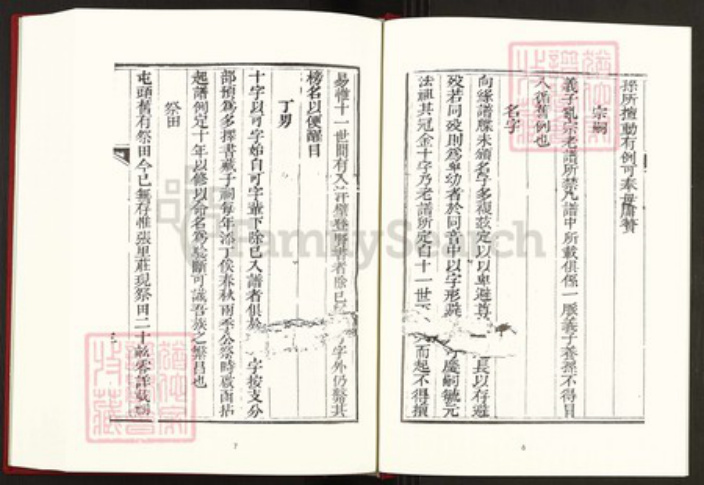 孫所擅動有例可奉毋庸贅
宗嗣
義子亂宗老譜所禁凡譜中所載俱係一脈義子養孫不得冒
入循舊例也
名字
向緣譜牒未頒名字多複玆定以以卑避尊 長以存避
歿若同歿則為卑幼者於同音中以字形 可慶嗣毓元
法祖其冠金十字乃老譜所定自十一世 而起不得攙
易惟十一世間有入 登賢書者除已 字外仍繫其
榜名以便醒目
丁男
十字以可字始自可字輩下除已入譜者俱 字按支分
部預為多擇書藏子祠每年添丁俟春秋兩季公祭時啟函拈
起譜例定十年以修以命名為 斷可識吾族之繁昌也
祭田
屯頭舊有祭田今已無存惟張里莊現祭田二十畝零詳載
7
6
FamilySearch